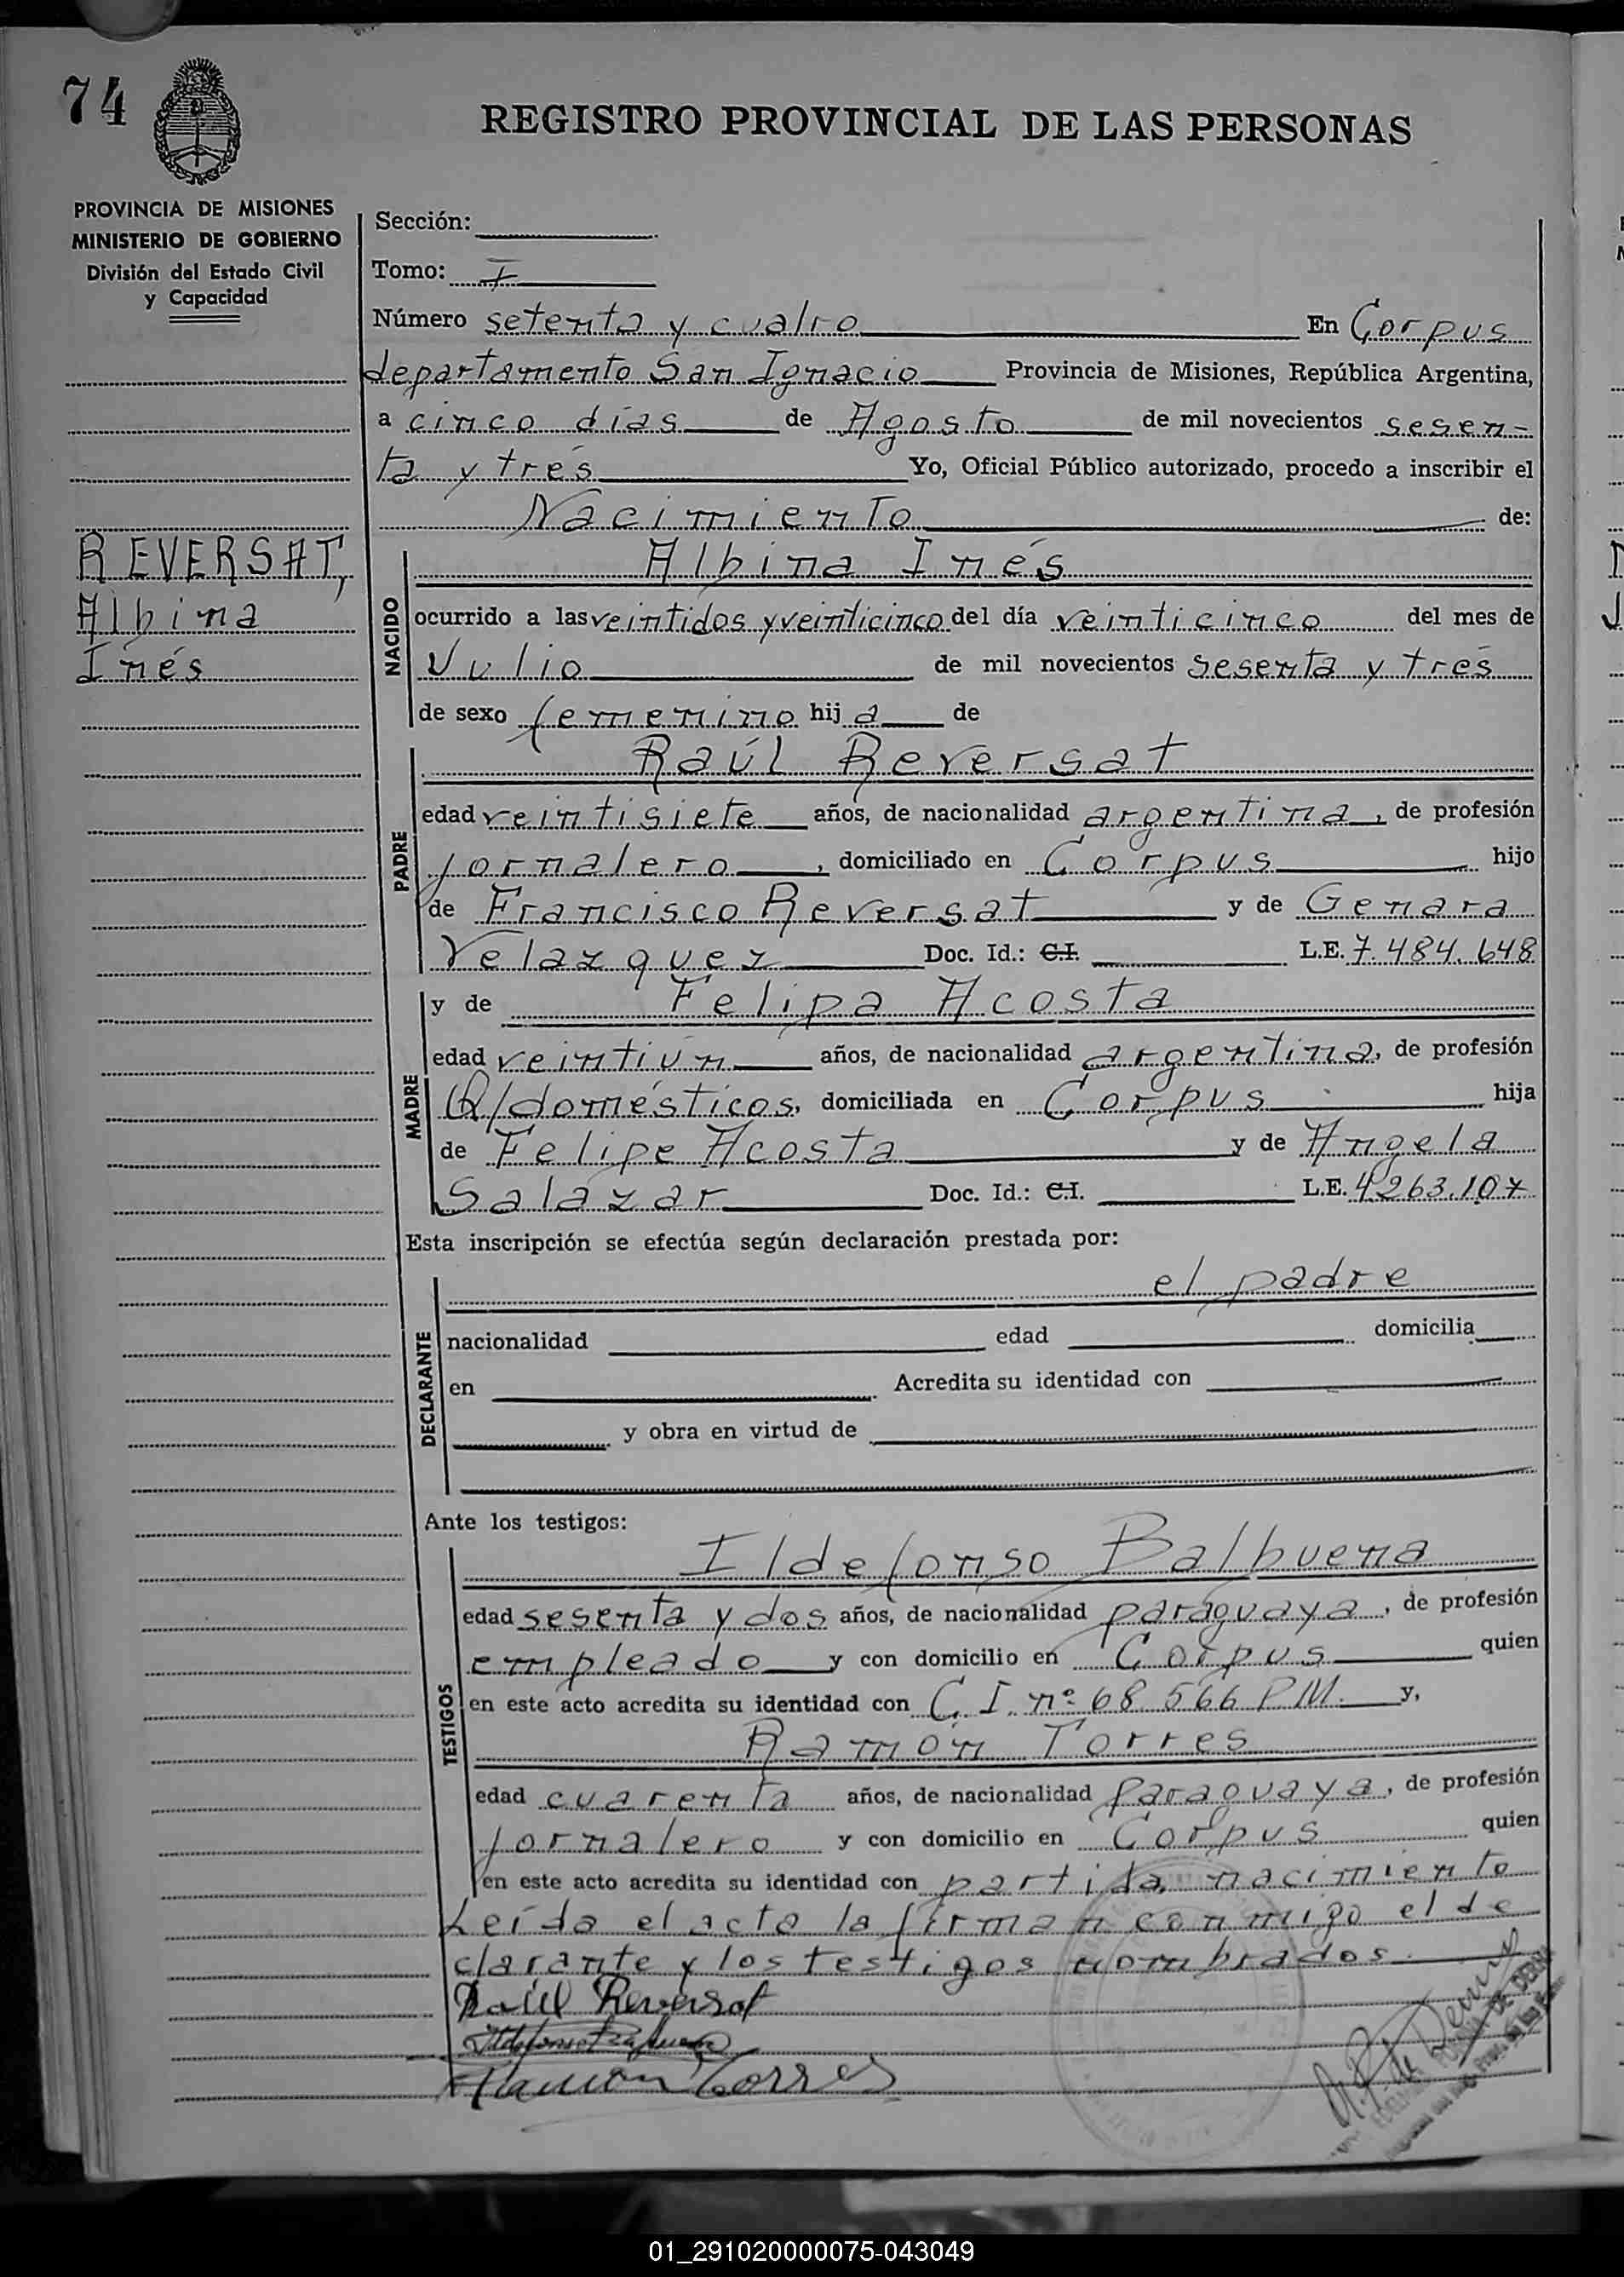 74
REGISTRO PROVINCIAL DE LAS PERSONAS
PROVINCIA DE MISIONES
MINISTERIO DE GOBIERNO
División del Estado Civil
y Capacidad
Sección:
Tomo: I
Número setenta y cuatro En Corpus
departamento San Ignacio Provincia de Misiones, República Argentina,
a cinco días de Agosto de mil novecientos sesen-
ta y tres Yo, Oficial Público autorizado, procedo a inscribir el
Nacimiento de:
REVERSAT,
Albina
Inés
NACIDO
Albina Inés
ocurrido a las veintidos y veinticinco del día veinticinco del mes de
Julio de mil novecientos sesenta y tres
de sexo femenino hija de
PADRE
Raúl Reversat
edad veintisiete años, de nacionalidad argentina, de profesión
jornalero, domiciliado en Corpus hijo
de Francisco Reversat y de Genara
Velazquez Doc. Id.: C.I. L.E. 7.484.648
MADRE
y de Felipa Acosta
edad veintiún años, de nacionalidad argentina, de profesión
Q/domésticos, domiciliada en Corpus hija
de Felipe Acosta y de Angela
Salazar Doc. Id.: C.I. L.E. 4263.107
Esta inscripción se efectúa según declaración prestada por:
DECLARANTE
el padre
nacionalidad edad domicilia
en Acredita su identidad con
y obra en virtud de
Ante los testigos:
TESTIGOS
Ildefonso Balbuena
edad sesenta y dos años, de nacionalidad paraguaya, de profesión
empleado y con domicilio en Corpus quien
en este acto acredita su identidad con C.I. nº 68 566 P.M. y,
Ramón Torres
edad cuarenta años, de nacionalidad paraguaya, de profesión
jornalero y con domicilio en Corpus quien
en este acto acredita su identidad con partida nacimiento
Leída el acta la firman conmigo el de
clarante y los testigos nombrados.
Raúl Reversat
Ildefonso Balbuena
Ramón Torres
01_291020000075-043049